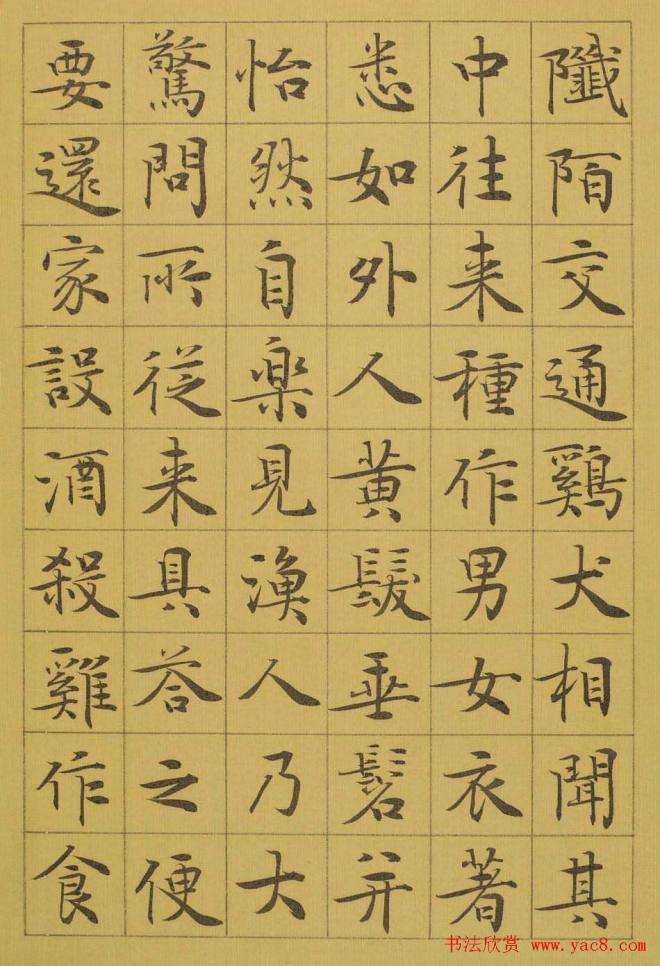 阡陌交通鷄犬相聞其
中往来種作男女衣著
悉如外人黄髮垂髫并
怡然自樂見漁人乃大
驚問所從来具答之便
要還家設酒殺雞作食
书法欣赏 www.yac8.com